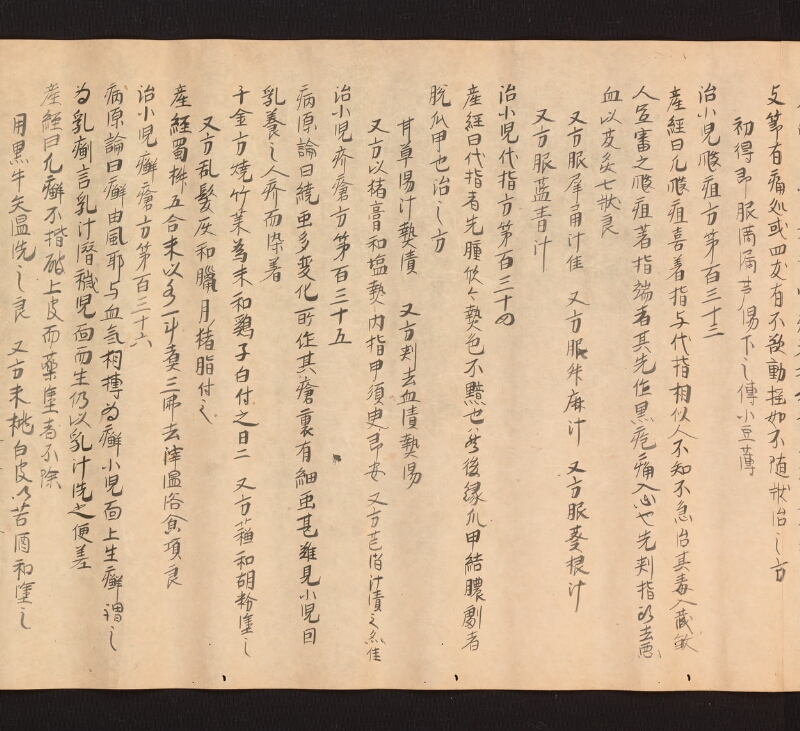 支第有痛処或四支有不欲動揺如不随状治之方
初得即服満扇芦傷下之傅小豆薄
治小児瘭疽方第百三十三
産経曰凡瘭疽喜着指与代指相似人不知不急治其毒入蔵敏
人宜審之瘭疽著指端者其先作黒疱痛入心也先刾指头去悪
血以艾灸七壮良
又方服犀角汁佳 又方服升麻汁 又方服葵根汁
又方服藍青汁
治小児代指方第百三十四
産経曰代指者先腫欣々熱色不黯也然後縁爪甲結膿劇者
脱爪甲也治之方
甘草湯汁熱漬 又方刾去血漬熱湯
又方以猪膏和塩熱内指甲須臾即安 又方芒消汁漬之佳
治小児疥瘡方第百三十五
病源論曰繞虫多変化所作其瘡裏有細虫甚難見小児因
乳養之人疥而染著
千金方焼竹葉為末和鶏子白付之日二 又方藉和胡粉塗之
又方乱髪灰和臘月猪脂付之
産経蜀椒五合末以水一斗煮三沸去滓温洛食頃良
治小児癬瘡方第百三十六
病原論曰癬由風耶与血気相摶為癬小児面上生癬謂之
為乳癬言乳汁曆穢児面而生仍以乳汁洗之便差
産経曰凡癬不揩破上皮而薬塗者不除
用黒牛矢温洗之良 又方末桃白皮以苦酒和塗之